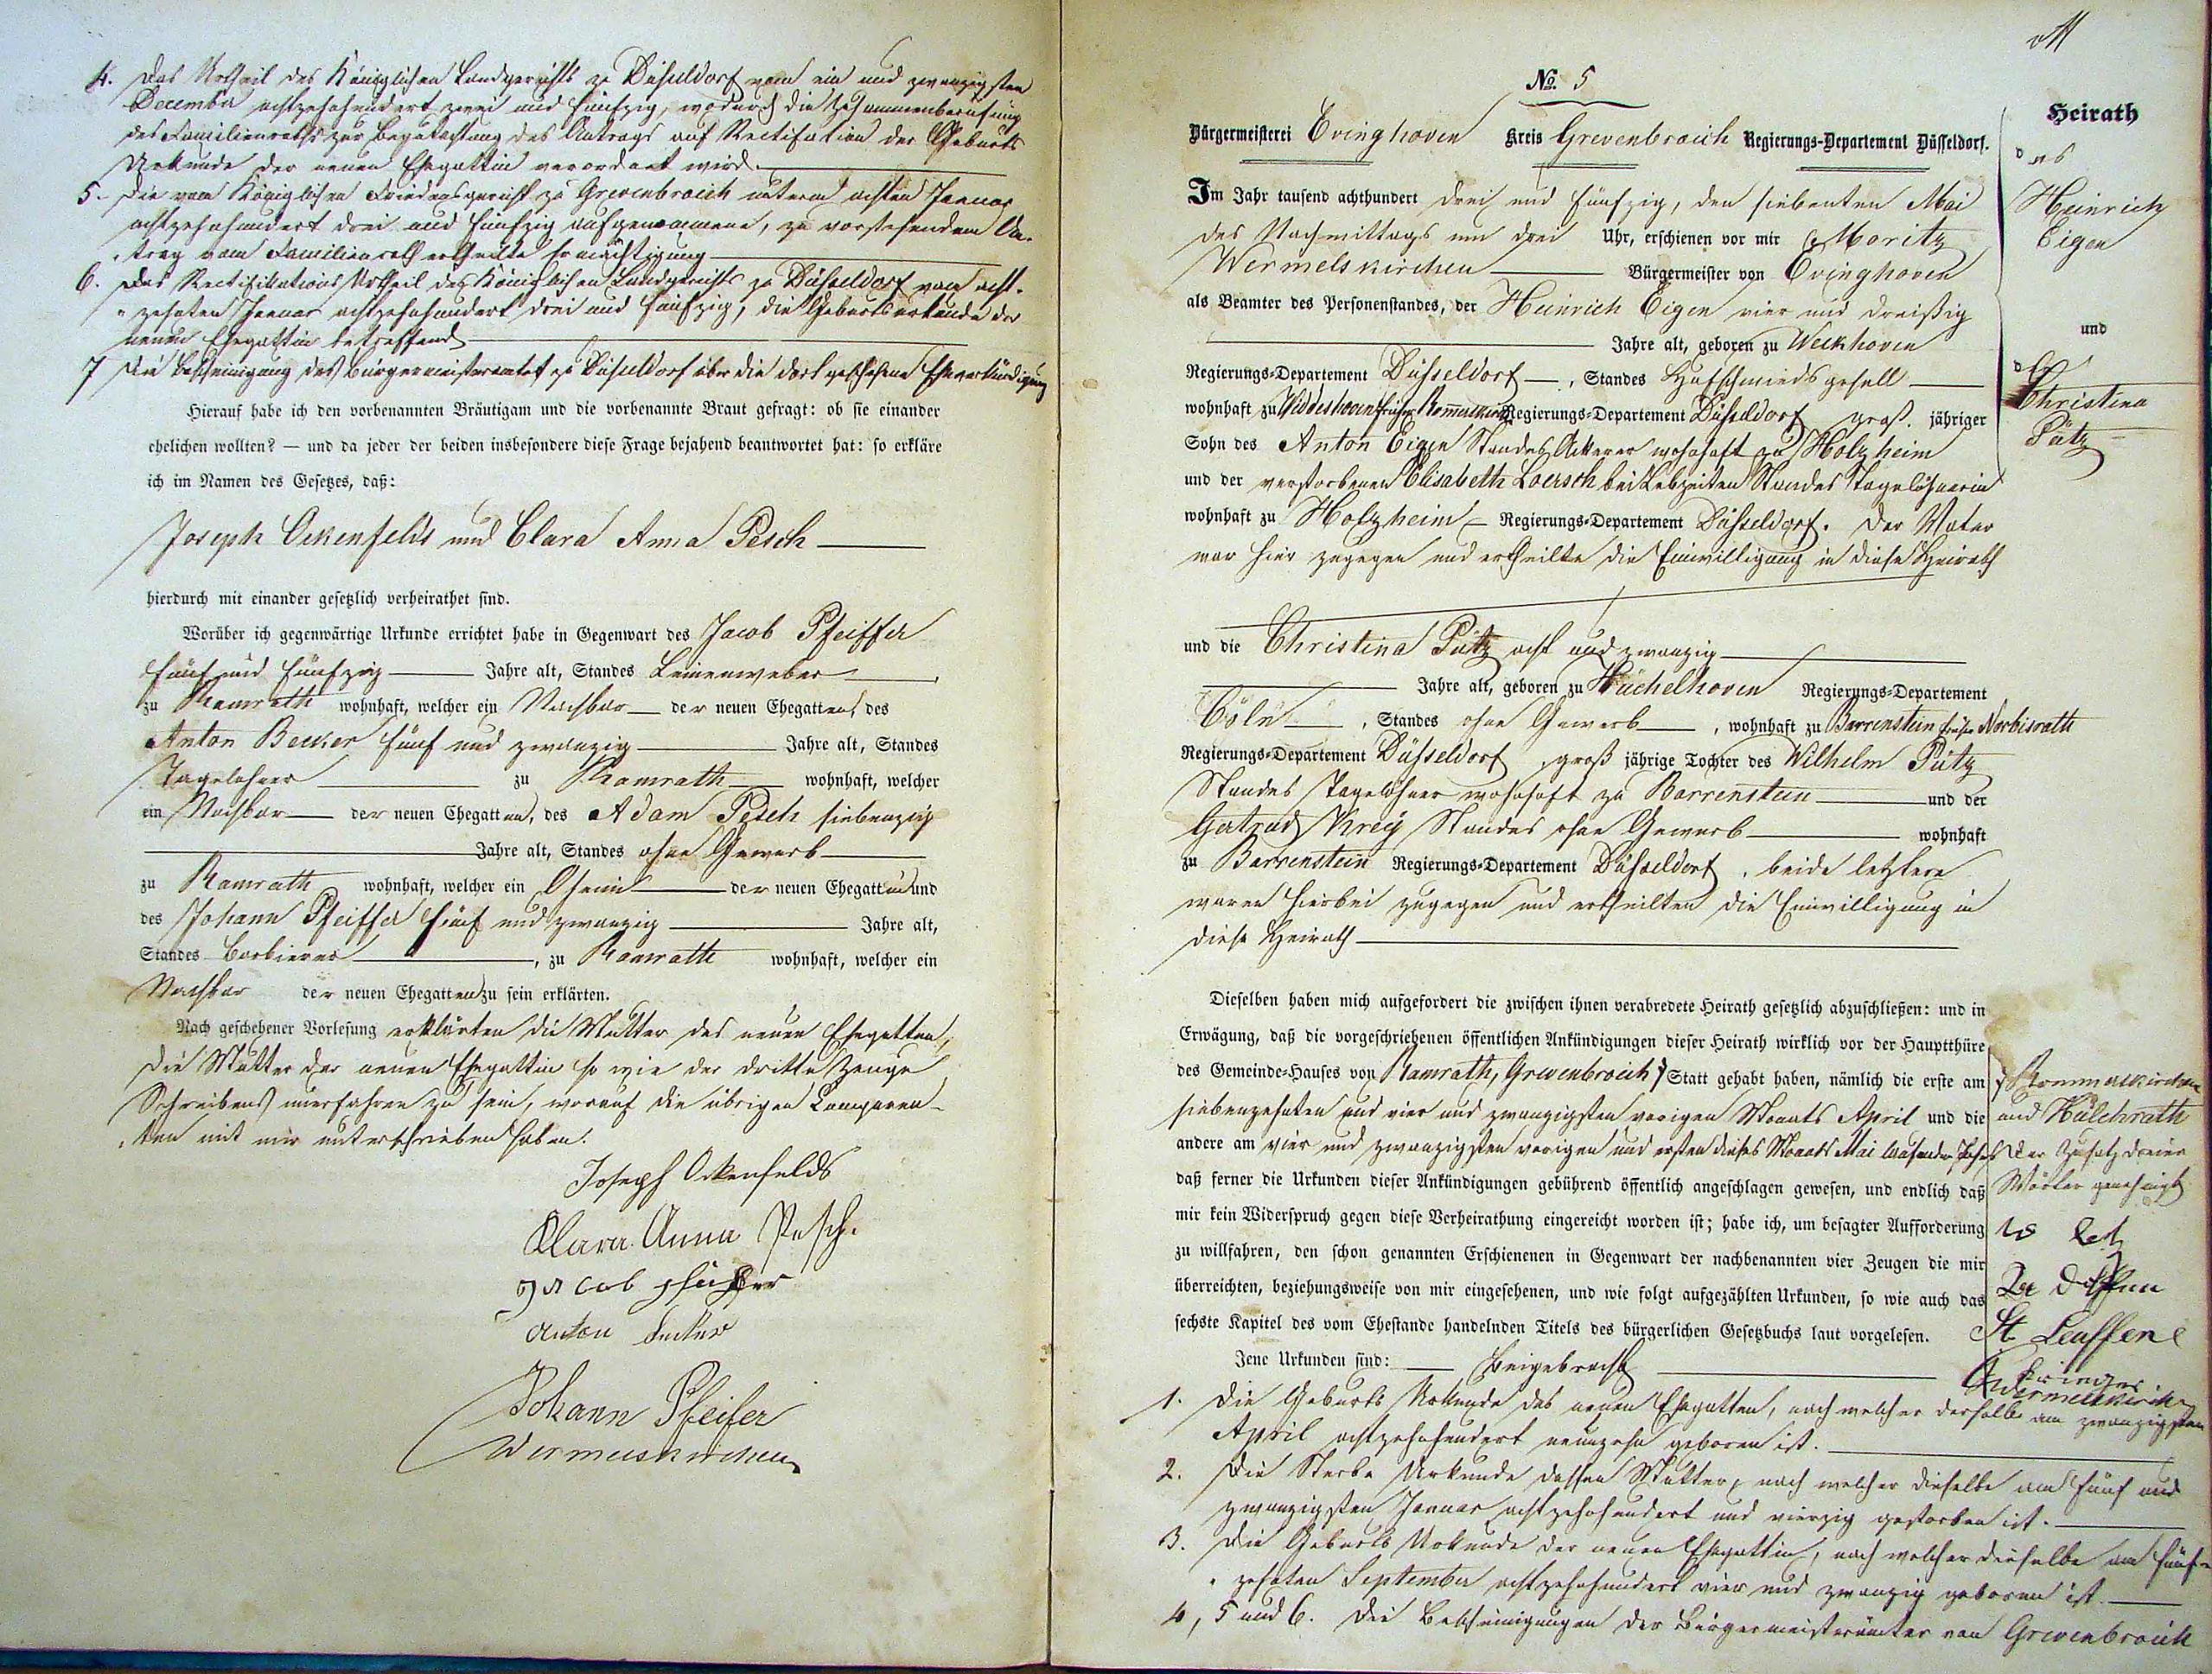 4. Das Urtheil des Königlichen Landgerichts zu Düsseldorf vom ein und zwanzigsten
December achtzehnhundert zwei und fünfzig, wodurch die Zusammenberufung
des Familienraths zur Begutachtung des Antrags auf Rectifikation der Geburts
Urkunde der neuen Ehegattin verordnet wird.
5. Die vom Königlichen Friedensgericht zu Grevenbroich unterm achten Januar
achtzehnhundert drei und fünfzig aufgenommene, zu vorstehendem An-
trag vom Familienrath ertheilte Ermächtigung
6. Das Rectifikations Urtheil des Königlichen Landgerichts zu Düsseldorf vom acht-
zehnten Januar achtzehnhundert drei und fünfzig, die Geburtsurkunde der
neuen Ehegattin betreffend
7 Die Bescheinigung des Bürgermeisteramtes zu Düsseldorf über die dort geschehene Eheverkündigung
Hierauf habe ich den vorbenannten Bräutigam und die vorbenannte Braut gefragt: ob sie einander
ehelichen wollten? — und da jeder der beiden insbesondere diese Frage bejahend beantwortet hat: so erkläre
ich im Namen des Gesetzes, daß:
Joseph Ockenfels und Clara Anna Pesch
hierdurch mit einander gesetzlich verheirathet sind.
Worüber ich gegenwärtige Urkunde errichtet habe in Gegenwart des Jacob Pfeiffer
fünf und fünfzig Jahre alt, Standes Leinenweber
zu Ramrath wohnhaft, welcher ein Nachbar der neuen Ehegatten, des
Anton Becker fünf und zwanzig Jahre alt, Standes
Tagelöhner zu Ramrath wohnhaft, welcher
ein Nachbar der neuen Ehegatten, des Adam Pesch siebenzig
Jahre alt, Standes ohne Gewerb
zu Ramrath wohnhaft, welcher ein Oheim der neuen Ehegattin und
des Johann Pfeiffer fünf und zwanzig Jahre alt,
Standes Barbierer, zu Ramrath wohnhaft, welcher ein
Nachbar der neuen Ehegatten zu sein erklärten.
Nach geschehener Vorlesung erklärten die Mutter des neuen Ehegatten,
die Mutter der neuen Ehegattin so wie der dritte Zeuge
Schreibens unerfahren zu sein, worauf die übrigen Comparen-
ten mit mir unterschrieben haben.
Joseph Ockenfelds
Klara Anna Pesch.
Jacob Pfeiffer
Anton Becker
Johann Pfeifer
Wermelskirchen
No. 5
Bürgermeisterei Evinghoven Kreis Grevenbroich Regierungs-Departement Düsseldorf.
Im Jahr tausend achthundert drei und fünfzig, den siebenten Mai
des Nachmittags um drei Uhr, erschienen vor mir Moritz
Wermelskirchen Bürgermeister von Evinghoven
als Beamter des Personenstandes, der Heinrich Eigen vier und dreißig
Jahre alt, geboren zu Weckhoven
Regierungs-Departement Düsseldorf, Standes Hufschmiedsgesell
wohnhaft zu Widdeshoven früher Rommerskirchen Regierungs-Departement Düsseldorf groß jähriger
Sohn des Anton Eigen Standes Ackerer wohnhaft zu Holzheim
und der verstorbenen Elisabeth Loersch bei Lebzeiten Standes Tagelöhnerin
wohnhaft zu Holzheim Regierungs-Departement Düsseldorf. Der Vater
war hier zugegen und ertheilte die Einwilligung in diese Heirath
und die Christina Pütz acht und zwanzig
Jahre alt, geboren zu Hüchelhoven Regierungs-Departement
Cöln, Standes ohne Gewerb, wohnhaft zu Barrenstein früher Norbisrath
Regierungs-Departement Düsseldorf, groß jährige Tochter des Wilhelm Pütz
Standes Tagelöhner wohnhaft zu Barrenstein und der
Gertrud Krey Standes ohne Gewerb wohnhaft
zu Barrenstein Regierungs-Departement Düsseldorf, beide letztere
waren hierbei zugegen und ertheilten die Einwilligung in
diese Heirath
Dieselben haben mich aufgefordert die zwischen ihnen verabredete Heirath gesetzlich abzuschließen: und in
Erwägung, daß die vorgeschriebenen öffentlichen Ankündigungen dieser Heirath wirklich vor der Hauptthüre
des Gemeinde-Hauses von Ramrath, Grevenbroich Statt gehabt haben, nämlich die erste am
siebenzehnten und vier und zwanzigsten vorigen Monats April und die
andere am vier und zwanzigsten vorigen und ersten dieses Monats Mai laufenden Jahres
daß ferner die Urkunden dieser Ankündigungen gebührend öffentlich angeschlagen gewesen, und endlich daß
mir kein Widerspruch gegen diese Verheirathung eingereicht worden ist; habe ich, um besagter Aufforderung
zu willfahren, den schon genannten Erschienenen in Gegenwart der nachbenannten vier Zeugen die mir
überreichten, beziehungsweise von mir eingesehenen, und wie folgt aufgezählten Urkunden, so wie auch das
sechste Kapitel des vom Ehestande handelnden Titels des bürgerlichen Gesetzbuchs laut vorgelesen.
Jene Urkunden sind: beigebracht
1. Die Geburts Urkunde des neuen Ehegatten, nach welcher derselbe am zwanzigsten
April achtzehnhundert neunzehn geboren ist.
2. Die Sterbe Urkunde dessen Mutter, nach welcher dieselbe am fünf und
zwanzigsten Januar achtzehnhundert und vierzig gestorben ist.
3. Die Geburts Urkunde der neuen Ehegattin, nach welcher dieselbe am fünf-
zehnten September achtzehnhundert vier und zwanzig geboren ist.
4, 5 und 6. Die Bescheinigungen der Bürgermeisterämter von Grevenbroich
Heirath
des
Heinrich
Eigen
und
der
Christina
Pütz
Rommerskirchen
und Hülchrath
Der Zusatz dreier
Wörter genehmigt
St Leuffen
Wermelskirchen